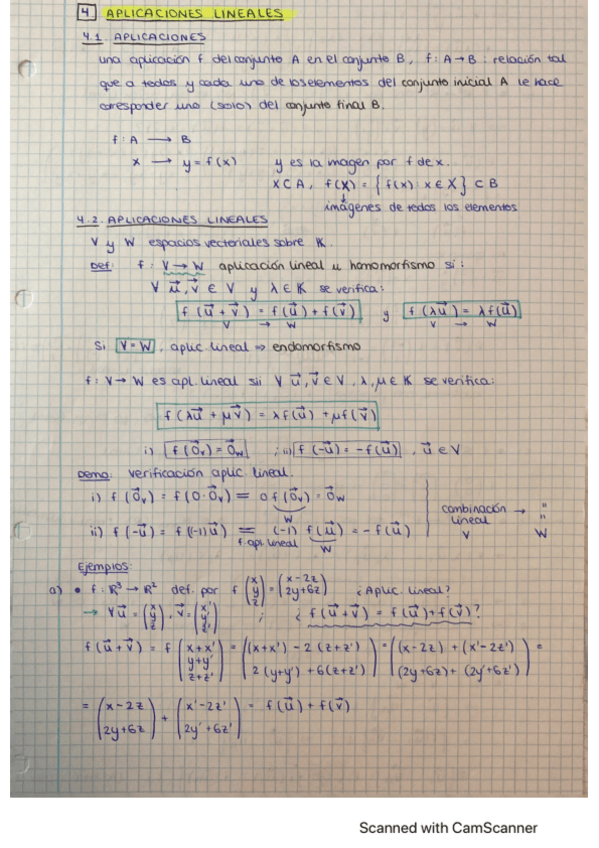 4 APLICACIONES LINEALES
4.1. APLICACIONES
una aplicación f del conjunto A en el conjunto B, f: A → B : relación tal
que a todos y cada uno de los elementos del conjunto inicial A le hace
corresponder uno (solo) del conjunto final B.
f: A → B
x → y = f(x) y es la imagen por f de x.
X ⊂ A, f(X) = { f(x) : x ∈ X } ⊂ B
imágenes de todos los elementos
4.2. APLICACIONES LINEALES
V y W espacios vectoriales sobre K.
Def: f: V → W aplicación lineal u homomorfismo si:
∀ u⃗, v⃗ ∈ V y λ ∈ K se verifica:
f (u⃗ + v⃗) = f(u⃗) + f(v⃗) y f(λu⃗) = λf(u⃗)
V → W V → W
Si V = W, aplic. lineal ⇒ endomorfismo
f: V → W es apl. lineal sii ∀ u⃗, v⃗ ∈ V, λ, μ ∈ K se verifica:
f(λu⃗ + μv⃗) = λf(u⃗) + μf(v⃗)
i) f(0⃗v) = 0⃗w ; ii) f(-u⃗) = -f(u⃗) , u⃗ ∈ V
Demo: verificación aplic. lineal.
i) f(0⃗v) = f(0·0⃗v) = 0f(0⃗v) = 0⃗w
W
combinación → "
lineal "
V W
ii) f(-u⃗) = f((-1)u⃗) = (-1) f(u⃗) = -f(u⃗)
f. apl. lineal W
Ejemplos:
a) • f: R³ → R² def. por f (x y z) = (x-2z 2y+6z) ¿Aplic. lineal?
→ ∀ u⃗ = (x y z), v⃗ = (x' y' z') ; ¿ f(u⃗+v⃗) = f(u⃗)+f(v⃗)?
f(u⃗+v⃗) = f (x+x' y+y' z+z') = ((x+x') - 2(z+z') 2(y+y') + 6(z+z')) = ((x-2z) + (x'-2z') (2y+6z) + (2y'+6z')) =
= (x-2z 2y+6z) + (x'-2z' 2y'+6z') = f(u⃗) + f(v⃗)
Scanned with CamScanner